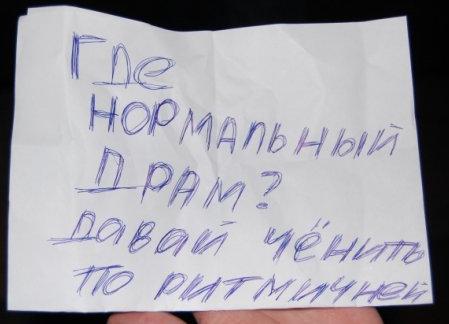 Где
нормальный
драм?
давай чёнить
по ритмичней